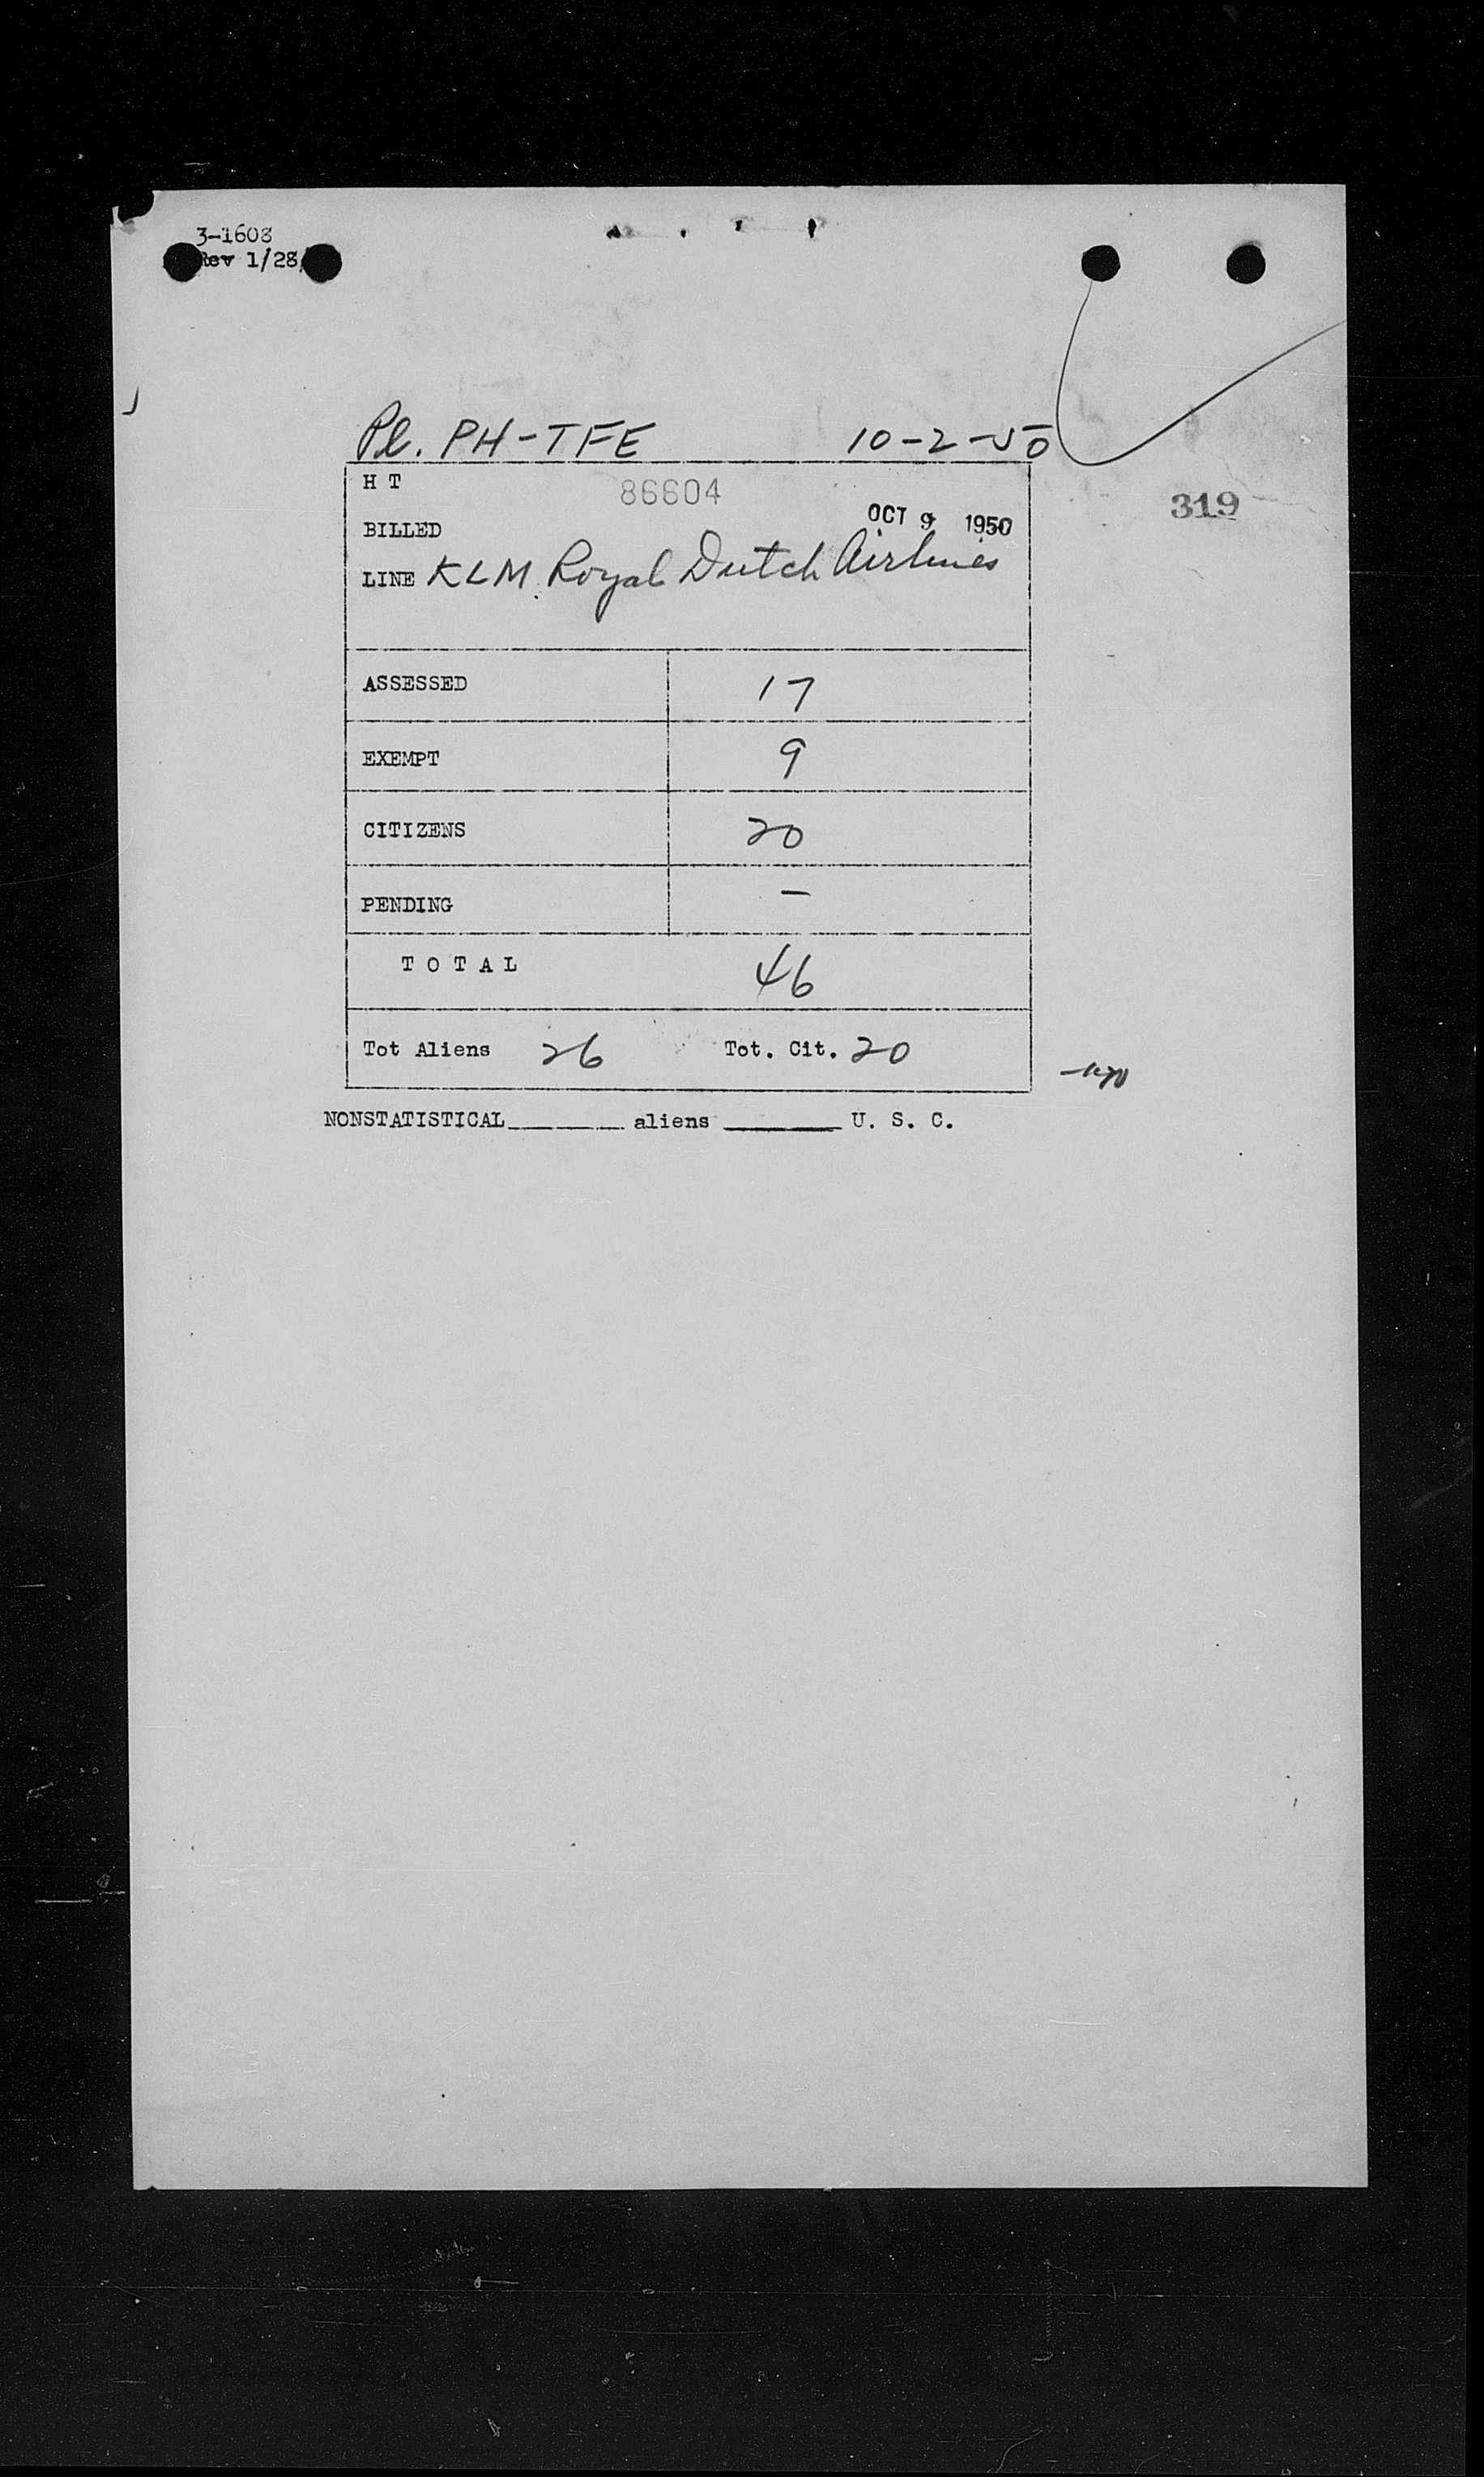 3-1608
Rev 1/28
Pl. PH-TFE 10-2-50
H T 86604
319
BILLED OCT 9 1950
LINE KLM Royal Dutch Airlines
ASSESSED 17
EXEMPT 9
CITIZENS 20
PENDING -
T O T A L 46
Tot Aliens 26 Tot. Cit. 20
NONSTATISTICAL______ aliens ______ U. S. C.